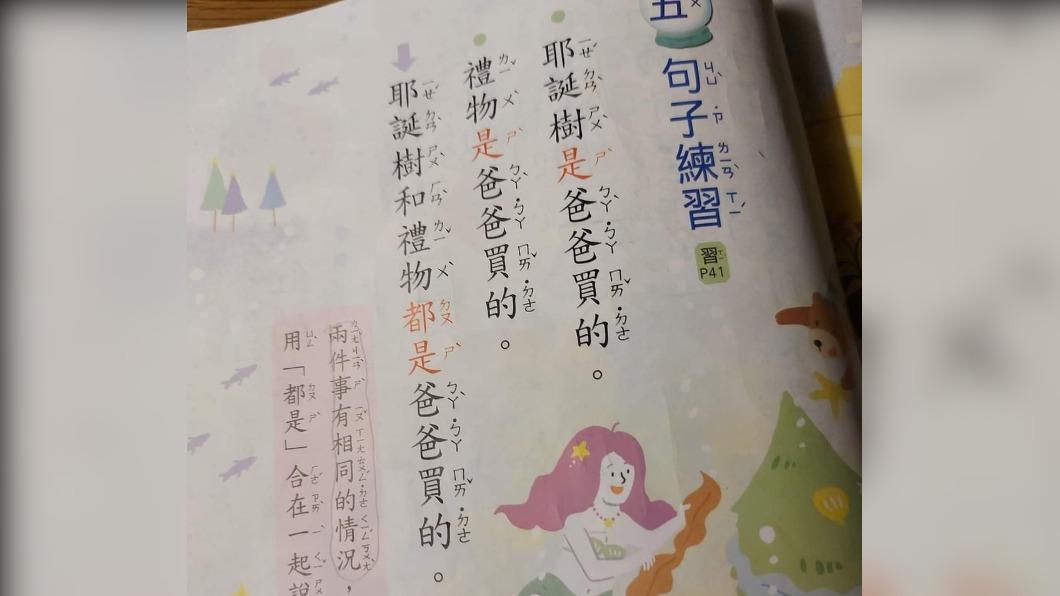 五
句子練習
習P41
耶誕樹是爸爸買的。
禮物是爸爸買的。
耶誕樹和禮物都是爸爸買的。
兩件事有相同的情況，
用「都是」合在一起說